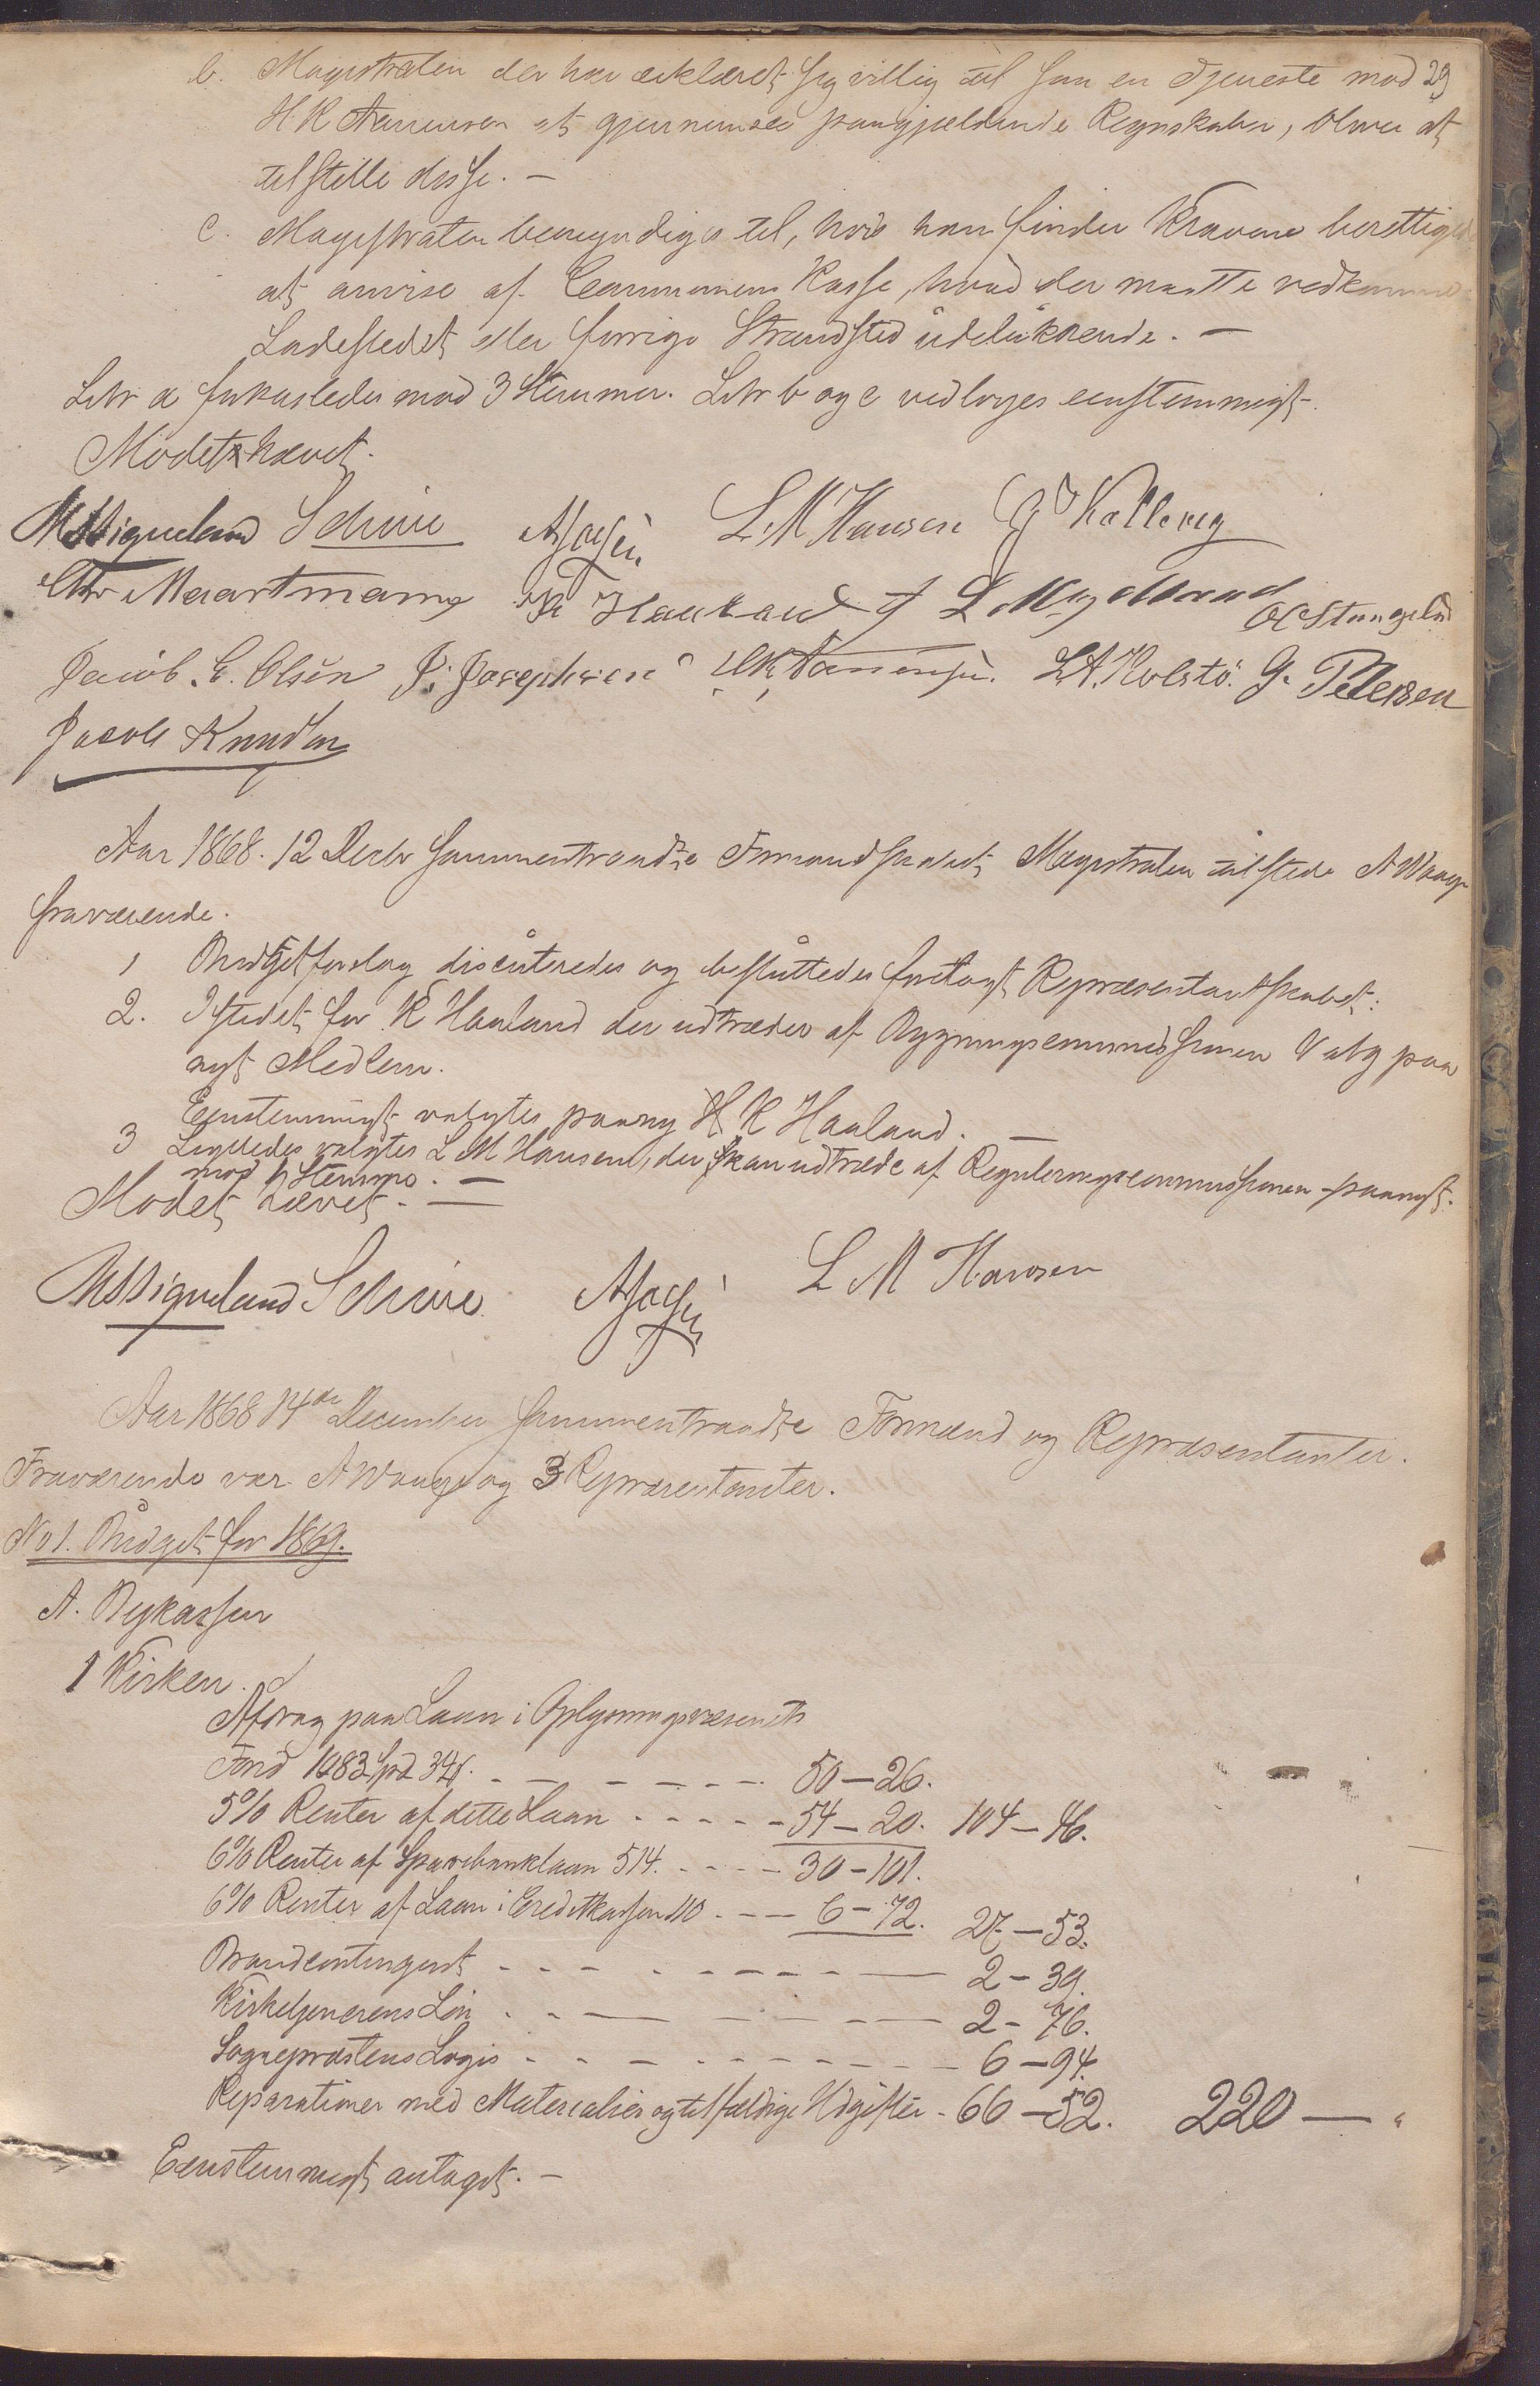 29
b. Magistraten der har erklæret sig villig til sam en Tjeneste mod
H. K. at gjennemsee paagjældende Regnskaber, bliver at
tilstille disse. —
c. Magistraten bemyndiges til, hvis han finder Kravene berettiget
at anvise af Communens Kasse, hvad der maatte vedkomme
Ladestedet eller forrige Strandsted udelukkende. —
Litr a forkastedes mod 3 Stemmer. Litr b og c vedtoges eenstemmigt.
Mødet hævet.
Schiøre L. M Hansen J Kolberg
Chr Maartmann
Jacob. E. Olsen J. Josephsen L. A. Kolstø. G. Petersen
Jacob Knudsen
Aar 1868. 12 Decbr sammentraadte Formandskabet, Magistraten tilstede A Waage
fraværende.
1 Budgetforslag discuteredes og besluttedes forelagt Repræsentantskabet.
2. Istedet for K Haaland der udtræder af Bygningscommissionen Valg paa
nyt Medlem.
Eenstemmigt valgtes paany H K Haaland. —
3 Ligeledes valgtes L M Hansen, der skan udtræde af Reguleringscommissionen paanyt.
mod 1 Stemme. —
Mødet hævet. —
Schiøre L M Hansen
Aar 1868 14de December sammentraadte Formænd og Repræsentanter.
Fraværende var A Waage og 3 Repræsentanter.
No 1. Budget for 1869.
A. Bykassen
1 Kirken.
Afdrag paa Laan i Oplysningsvæsenets
Fond 1083 Spd 34 s. - - - - - 50 — 26.
5% Renter af dette Laan - - - - - 54 — 20. 104 — 46.
6% Renter af Sparebanklaan 514. - - - - 30 — 101.
6% Renter af Laan i Creditkassen 110 - - - 6 — 72. 27 — 53.
Brandcontingent - - - - - - - - 2 — 39.
Kirketjenerens Løn - - - - - - - 2 — 76.
Sognepræstens Logis - - - - - - - 6 — 94.
Reparationer med Materialier og tilfældige Udgifter - 66 — 52. 220 — "
Eenstemmigt antaget. —